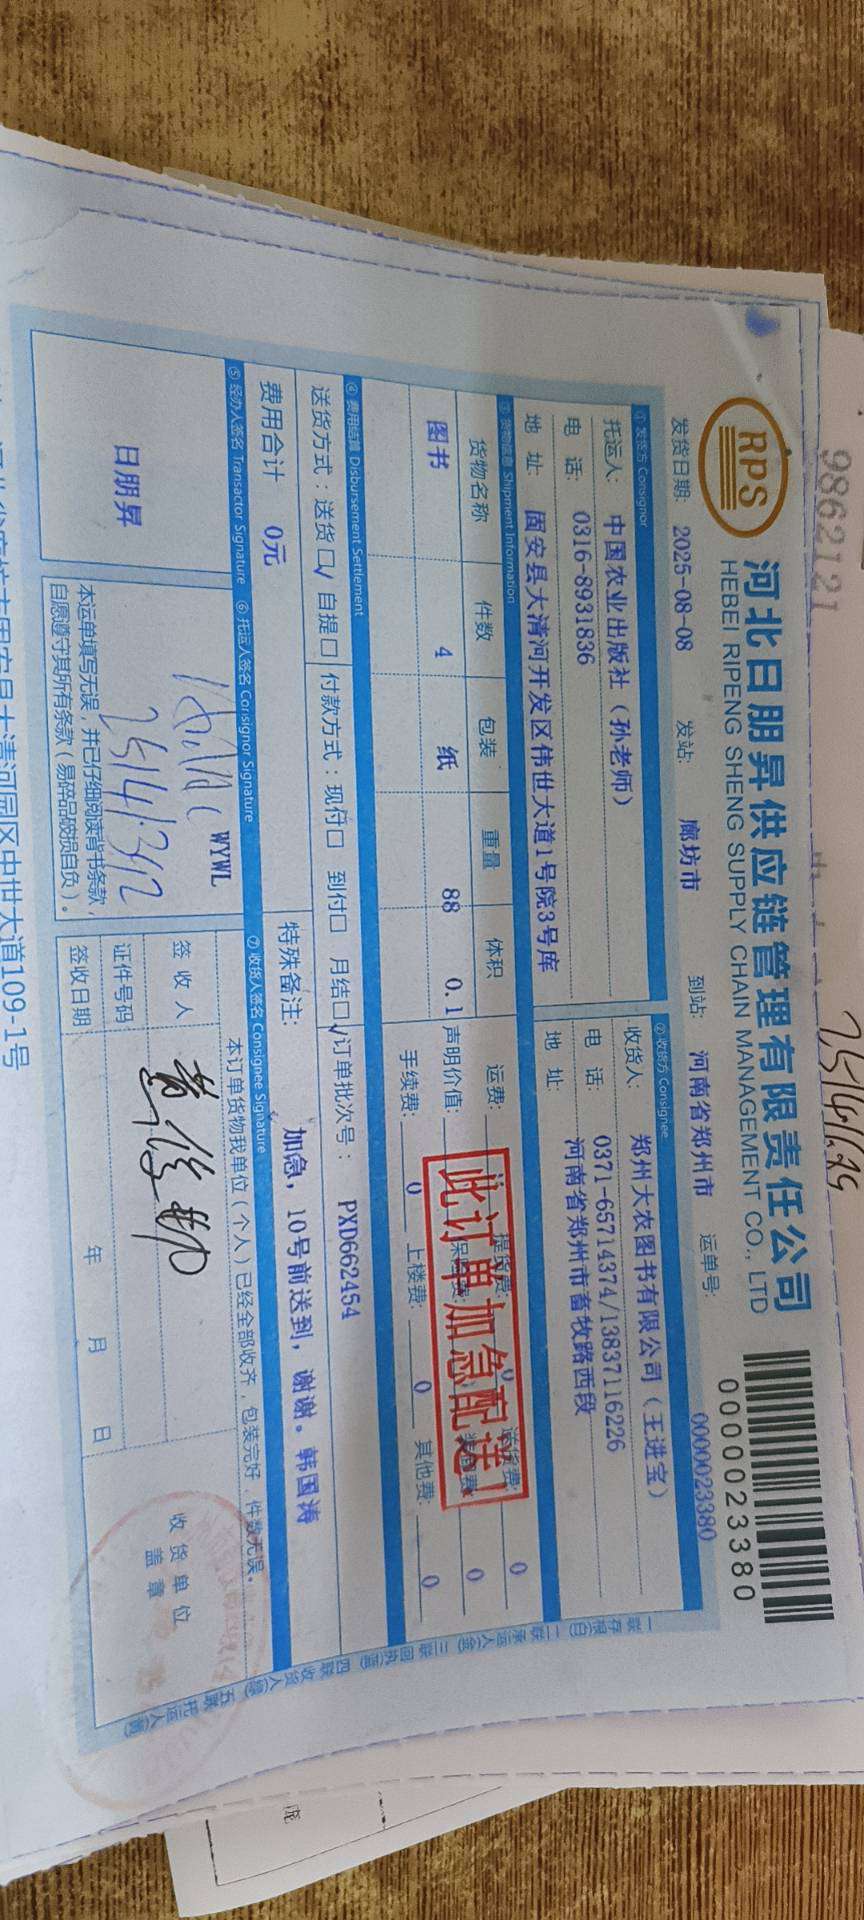 9862121
RPS
河北日朋昇供应链管理有限责任公司
HEBEI RIPENG SHENG SUPPLY CHAIN MANAGEMENT CO., LTD
0000023380
发货日期: 2025-08-08 发站: 廊坊市 到站: 河南省郑州市 运单号: 0000023380
① 发货方 Consignor ② 收货方 Consignee
托运人: 中国农业出版社(孙老师) 收货人: 郑州大农图书有限公司(王进宝)
电 话: 0316-8931836 电 话: 0371-65714374/13837116226
地 址: 固安县大清河开发区伟世大道1号院3号库 地 址: 河南省郑州市畜牧路西段
③ 货物信息 Shipment Information
货物名称 件数 包装 重量 体积 运费: 提货费: 0 送货费: 0
图书 4 纸 88 0.1 声明价值: 保险费: 装卸费: 0
手续费: 0 上楼费: 0 其他费: 0
此订单加急配送
④ 费用结算 Disbursement Settlement
送货方式: 送货□√ 自提□ 付款方式: 现付□ 到付□ 月结□√ 订单批次号: PXD662454
费用合计 0元 特殊备注: 加急,10号前送到,谢谢。韩国涛
⑤ 经办人签名 Transactor Signature ⑥ 托运人签名 Consignor Signature ⑦ 收货人签名 Consignee Signature
日朋昇
WYWL
25141312
本运单填写无误,并已仔细阅读背书条款,
自愿遵守其所有条款(易碎品破损自负)。
本订单货物我单位(个人)已经全部收齐,包装完好,件数无误。
签 收 人
证件号码
签收日期 年 月 日
收货单位
盖 章
一联存根(白) 二联承运人(金) 三联回执(蓝) 四联收货人(绿) 五联托运人(黄)
固安县大清河园区中世大道109-1号